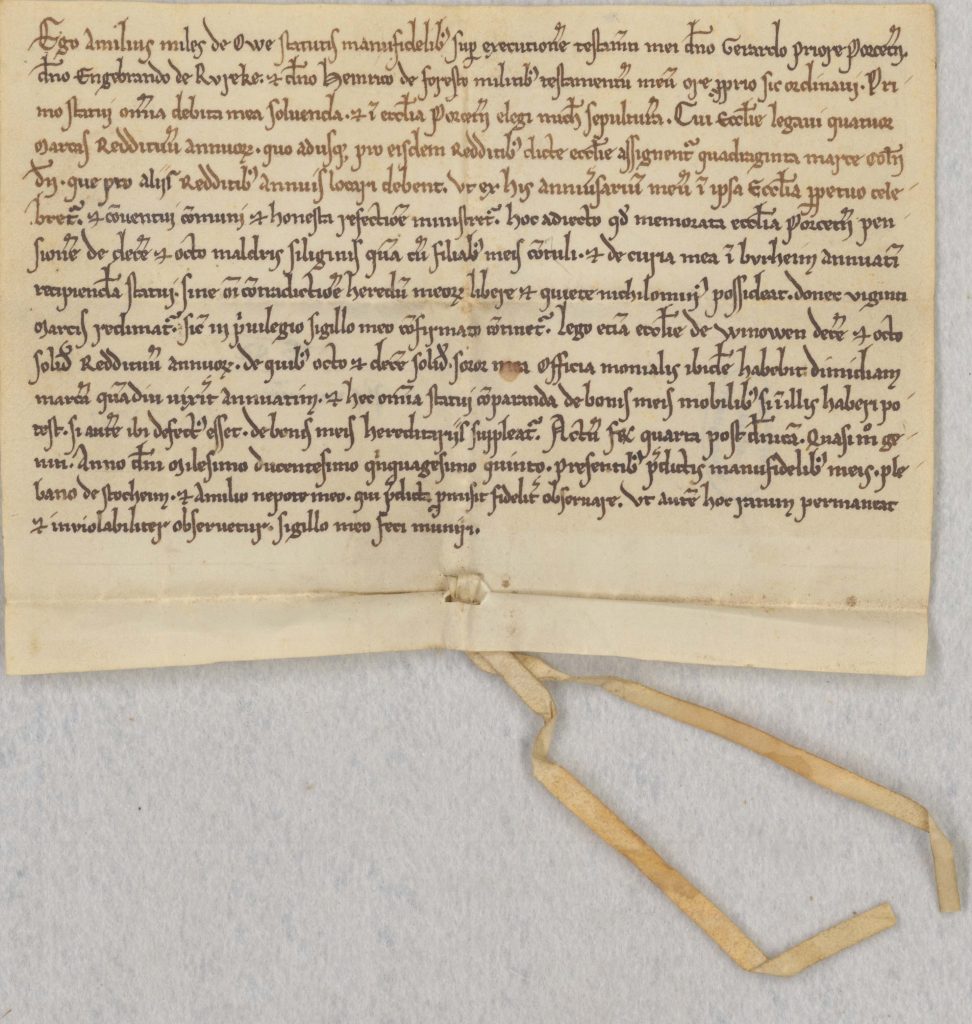 Ego Amilius miles de Owe statutis manufidelibꝰ sup̱ executiōe testam̄ti mei dn̄o Gerardo Priore Porcetn̄.
dn̄o Engebrando de Rvreke. ⁊ dn̄o Heinrico de foresto militibꝰ testamentū meū ore ꝓprio sic ordinaui. Pri
mo statui om̄ia debita mea soluenda. ⁊ ī eccl̄ia Porcetn̄ elegi mich̄ sepultura͂. Cui Eccl̄ie legaui quatuor
Marcas Reddituū annuoꝝ. quo adusqꝫ pro eisdem Redditibꝰ dicte eccl̄ie assignent᷑ quadraginta marce Coln̄
dn̄. que pro alijs Redditibꝰ annuis locari debent. Vt ex his anniu͛sariū meū ī ipsa Eccl̄ia ꝑpetuo cele
bret᷑. ⁊ cōuentui cōmuni ⁊ honesta refectiōe ministret᷑. hoc adiecto qd̄ memorata eccl̄ia Porcetn̄ pen
sionē de decē ⁊ octo maldris siliginis quā cū filiabꝰ meis cōtuli. ⁊ de curia mea ī bvrheim annuatī
recipienda statui. sine om̄i cōtradictiōe heredū meoꝝ libere ⁊ quiete nichilominꝰ possideat. donec viginti
Marcis redimat᷑. sic̄ in p͛uilegio sigillo meo cōfirmato cōtinet᷑. Lego etiā eccl̄ie de Winowen decē ⁊ octo
solid̄ Reddituū annuoꝝ. de quibꝰ octo ⁊ decē solid̄. soror mea Officia monialis ibidē habebit dimidiam
marcā quādiu uixerit annuatim. ⁊ hec om̄ia statui cōparanda de bonis meis mobilibꝰ si ī illis haberi po
test. si autē ibi defectꝰ esset. de bonis meis hereditarijs suppleat᷑. Actū quarta post dn̄icā. Quasi m̊ ge
niti. Anno dn̄i Milesimo ducentesimo qͥnquagesimo quinto. presentibꝰ p͛dictis manufidelibꝰ meis. ple
bano de stocheim. ⁊ Amilio nepote meo. qui p͛dicta ꝓmisit fidelit͛ obseruare. Vt autē hoc ratum permaneat
⁊ inviolabiliter obseruetur. sigillo meo feci mūniri.